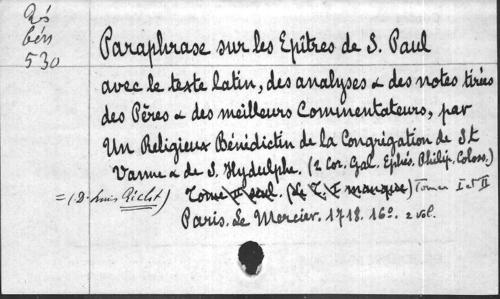 Rés
bén
530
Paraphrase sur les Epîtres de S. Paul
avec le texte latin, des analyses & des notes tirées
des Pères & des meilleurs Commentateurs, par
Un Religieux Bénédictin de la Congrégation de St
Vanne & de S. Hydulphe. (2 Cor. Gal. Ephés. Philip. Coloss.)
= (D. Louis Riclot) Tome II seul. (Le T. I manque) Tomes I et II
Paris. Le Mercier. 1718. 16º. 2 vol.